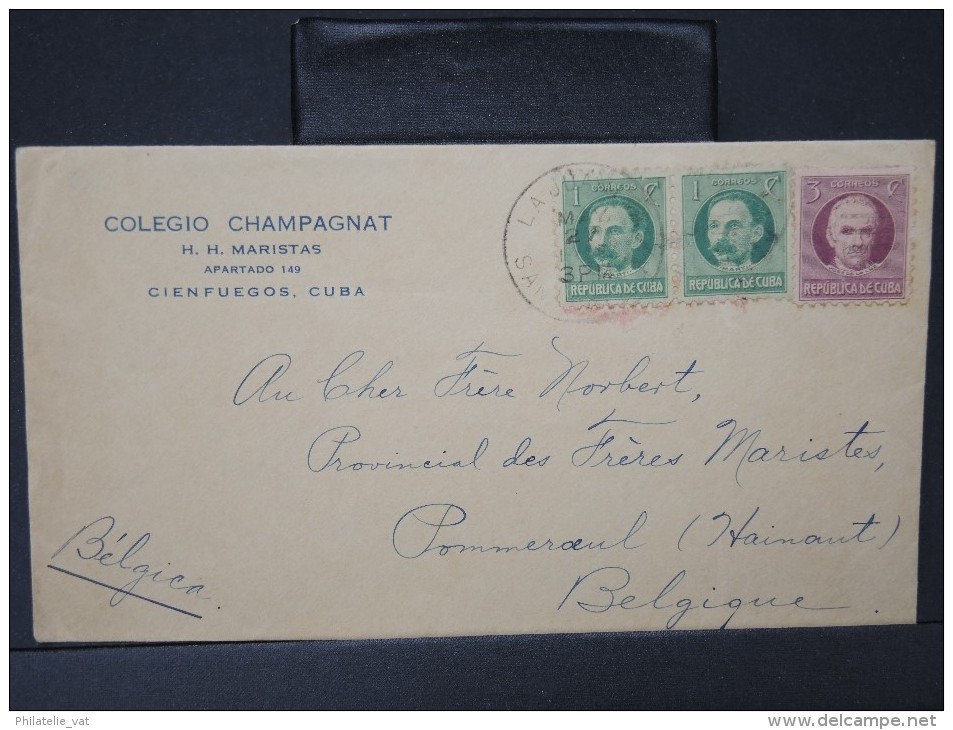 COLEGIO CHAMPAGNAT
H. H. MARISTAS
APARTADO 149
CIENFUEGOS, CUBA
1 CORREOS ¢
MARTI
REPUBLICA DE CUBA
1 CORREOS ¢
MARTI
REPUBLICA DE CUBA
3 CORREOS ¢
REPUBLICA DE CUBA
LA
SAN
Au Cher Frère Norbert,
Provincial des Frères Maristes,
Pommerœul (Hainaut)
Belgique.
Bélgica.
Philatelie_vat
www.delcampe.net